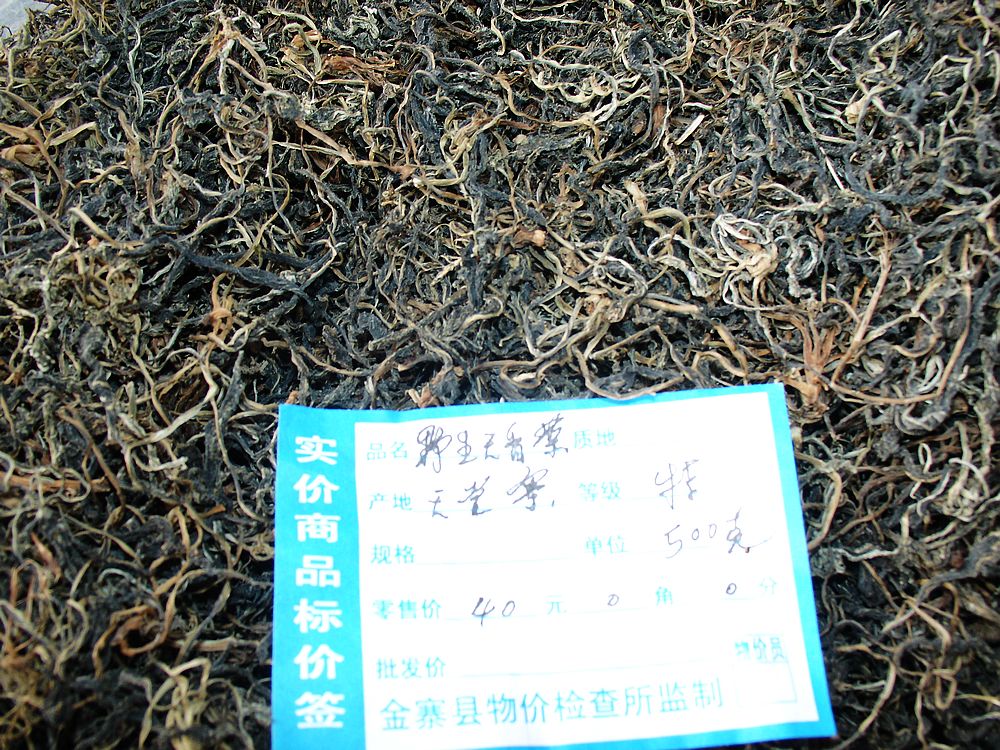 实价商品标价签
品名 野生天香菜 质地
产地 天堂寨 等级 特
规格 单位 500克
零售价 40 元 0 角 0 分
批发价 物价员
金寨县物价检查所监制